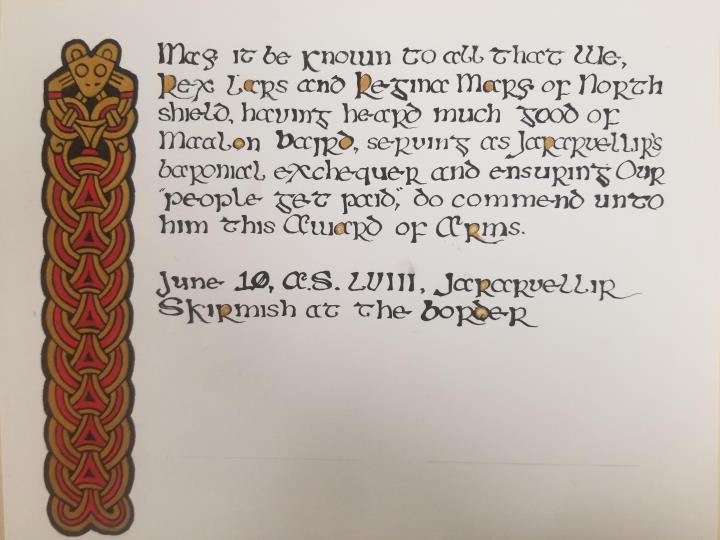 May it be known to all that We,
Rex Lars and Regina Mary of North
shield, having heard much good of
Maalon Baird, serving as Jararvellir's
baronial exchequer and ensuring Our
"people get paid," do commend unto
him this Award of Arms.
June 10, A.S. LVIII, Jararvellir
Skirmish at the border